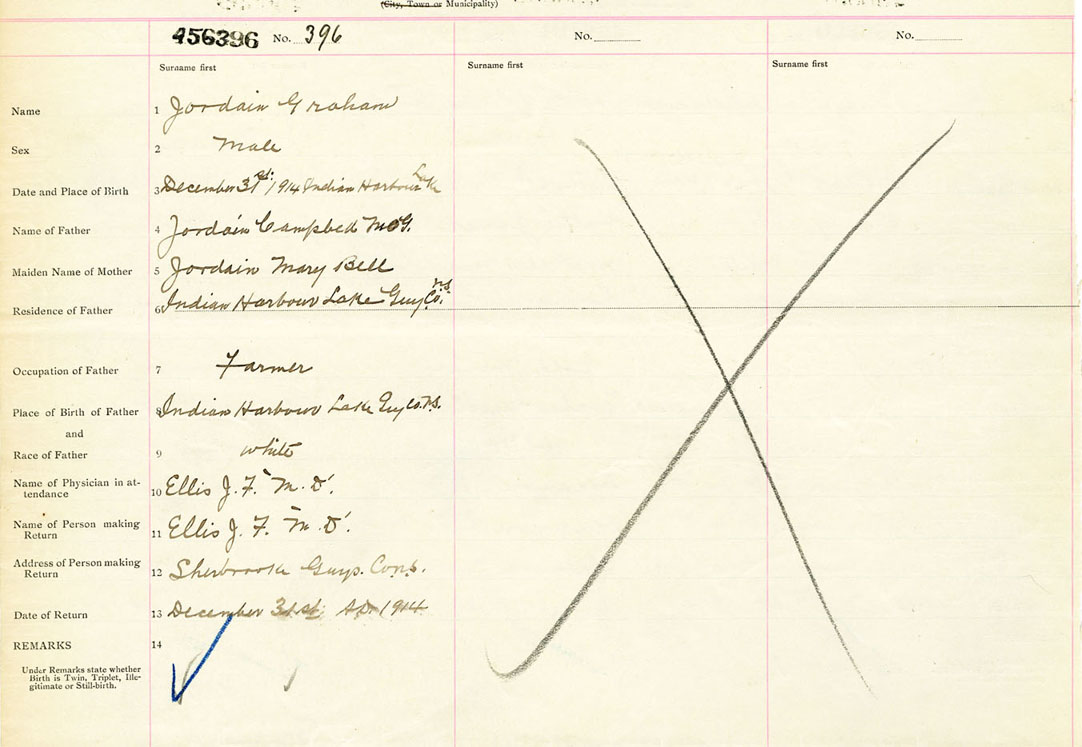 (City, Town or Municipality)
456396 No. 396 No. No.
Surname first Surname first Surname first
Name 1 Jordain Graham
Sex 2 Male
Date and Place of Birth 3 December 31st 1914 Indian Harbour Lake
Name of Father 4 Jordain Campbell McG.
Maiden Name of Mother 5 Jordain Mary Bell
Residence of Father 6 Indian Harbour Lake Guy Co. N.S.
Occupation of Father 7 Farmer
Place of Birth of Father 8 Indian Harbour Lake Guy Co. N.S.
and
Race of Father 9 white
Name of Physician in at-
tendance 10 Ellis J. F. M. D.
Name of Person making
Return 11 Ellis J. F. M. D.
Address of Person making
Return 12 Sherbrooke Guys.
Date of Return 13 December 31st A.D. 1914
REMARKS 14
Under Remarks state whether
Birth is Twin, Triplet, Ille-
gitimate or Still-birth.